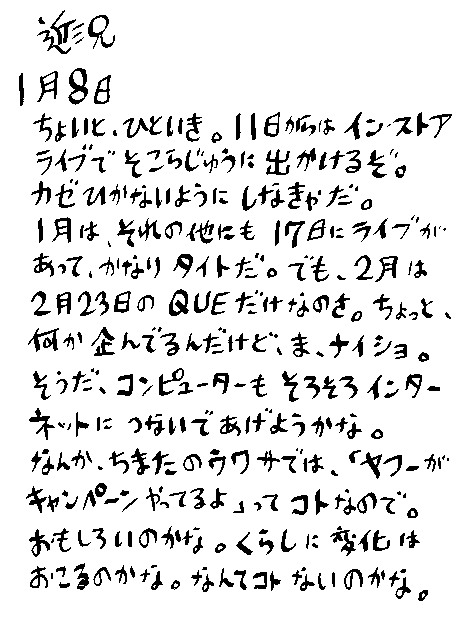 近況
1月8日
ちょいと、ひといき。11日からは イン・ストア
ライブで そこらじゅうに 出かけるぞ。
カゼひかないように しなきゃだ。
1月は、それの他にも 17日に ライブが
あって、かなり タイトだ。でも、2月は
2月23日の QUEだけなのさ。ちょっと、
何か 企んでるんだけど、ま、ナイショ。
そうだ、コンピューターも そろそろ インター
ネットに つないであげようかな。
なんか、ちまたのウワサでは、「ヤフーが
キャンペーン やってるよ」って コトなので。
おもしろいのかな。くらしに 変化は
おこるのかな。なんてコト ないのかな。